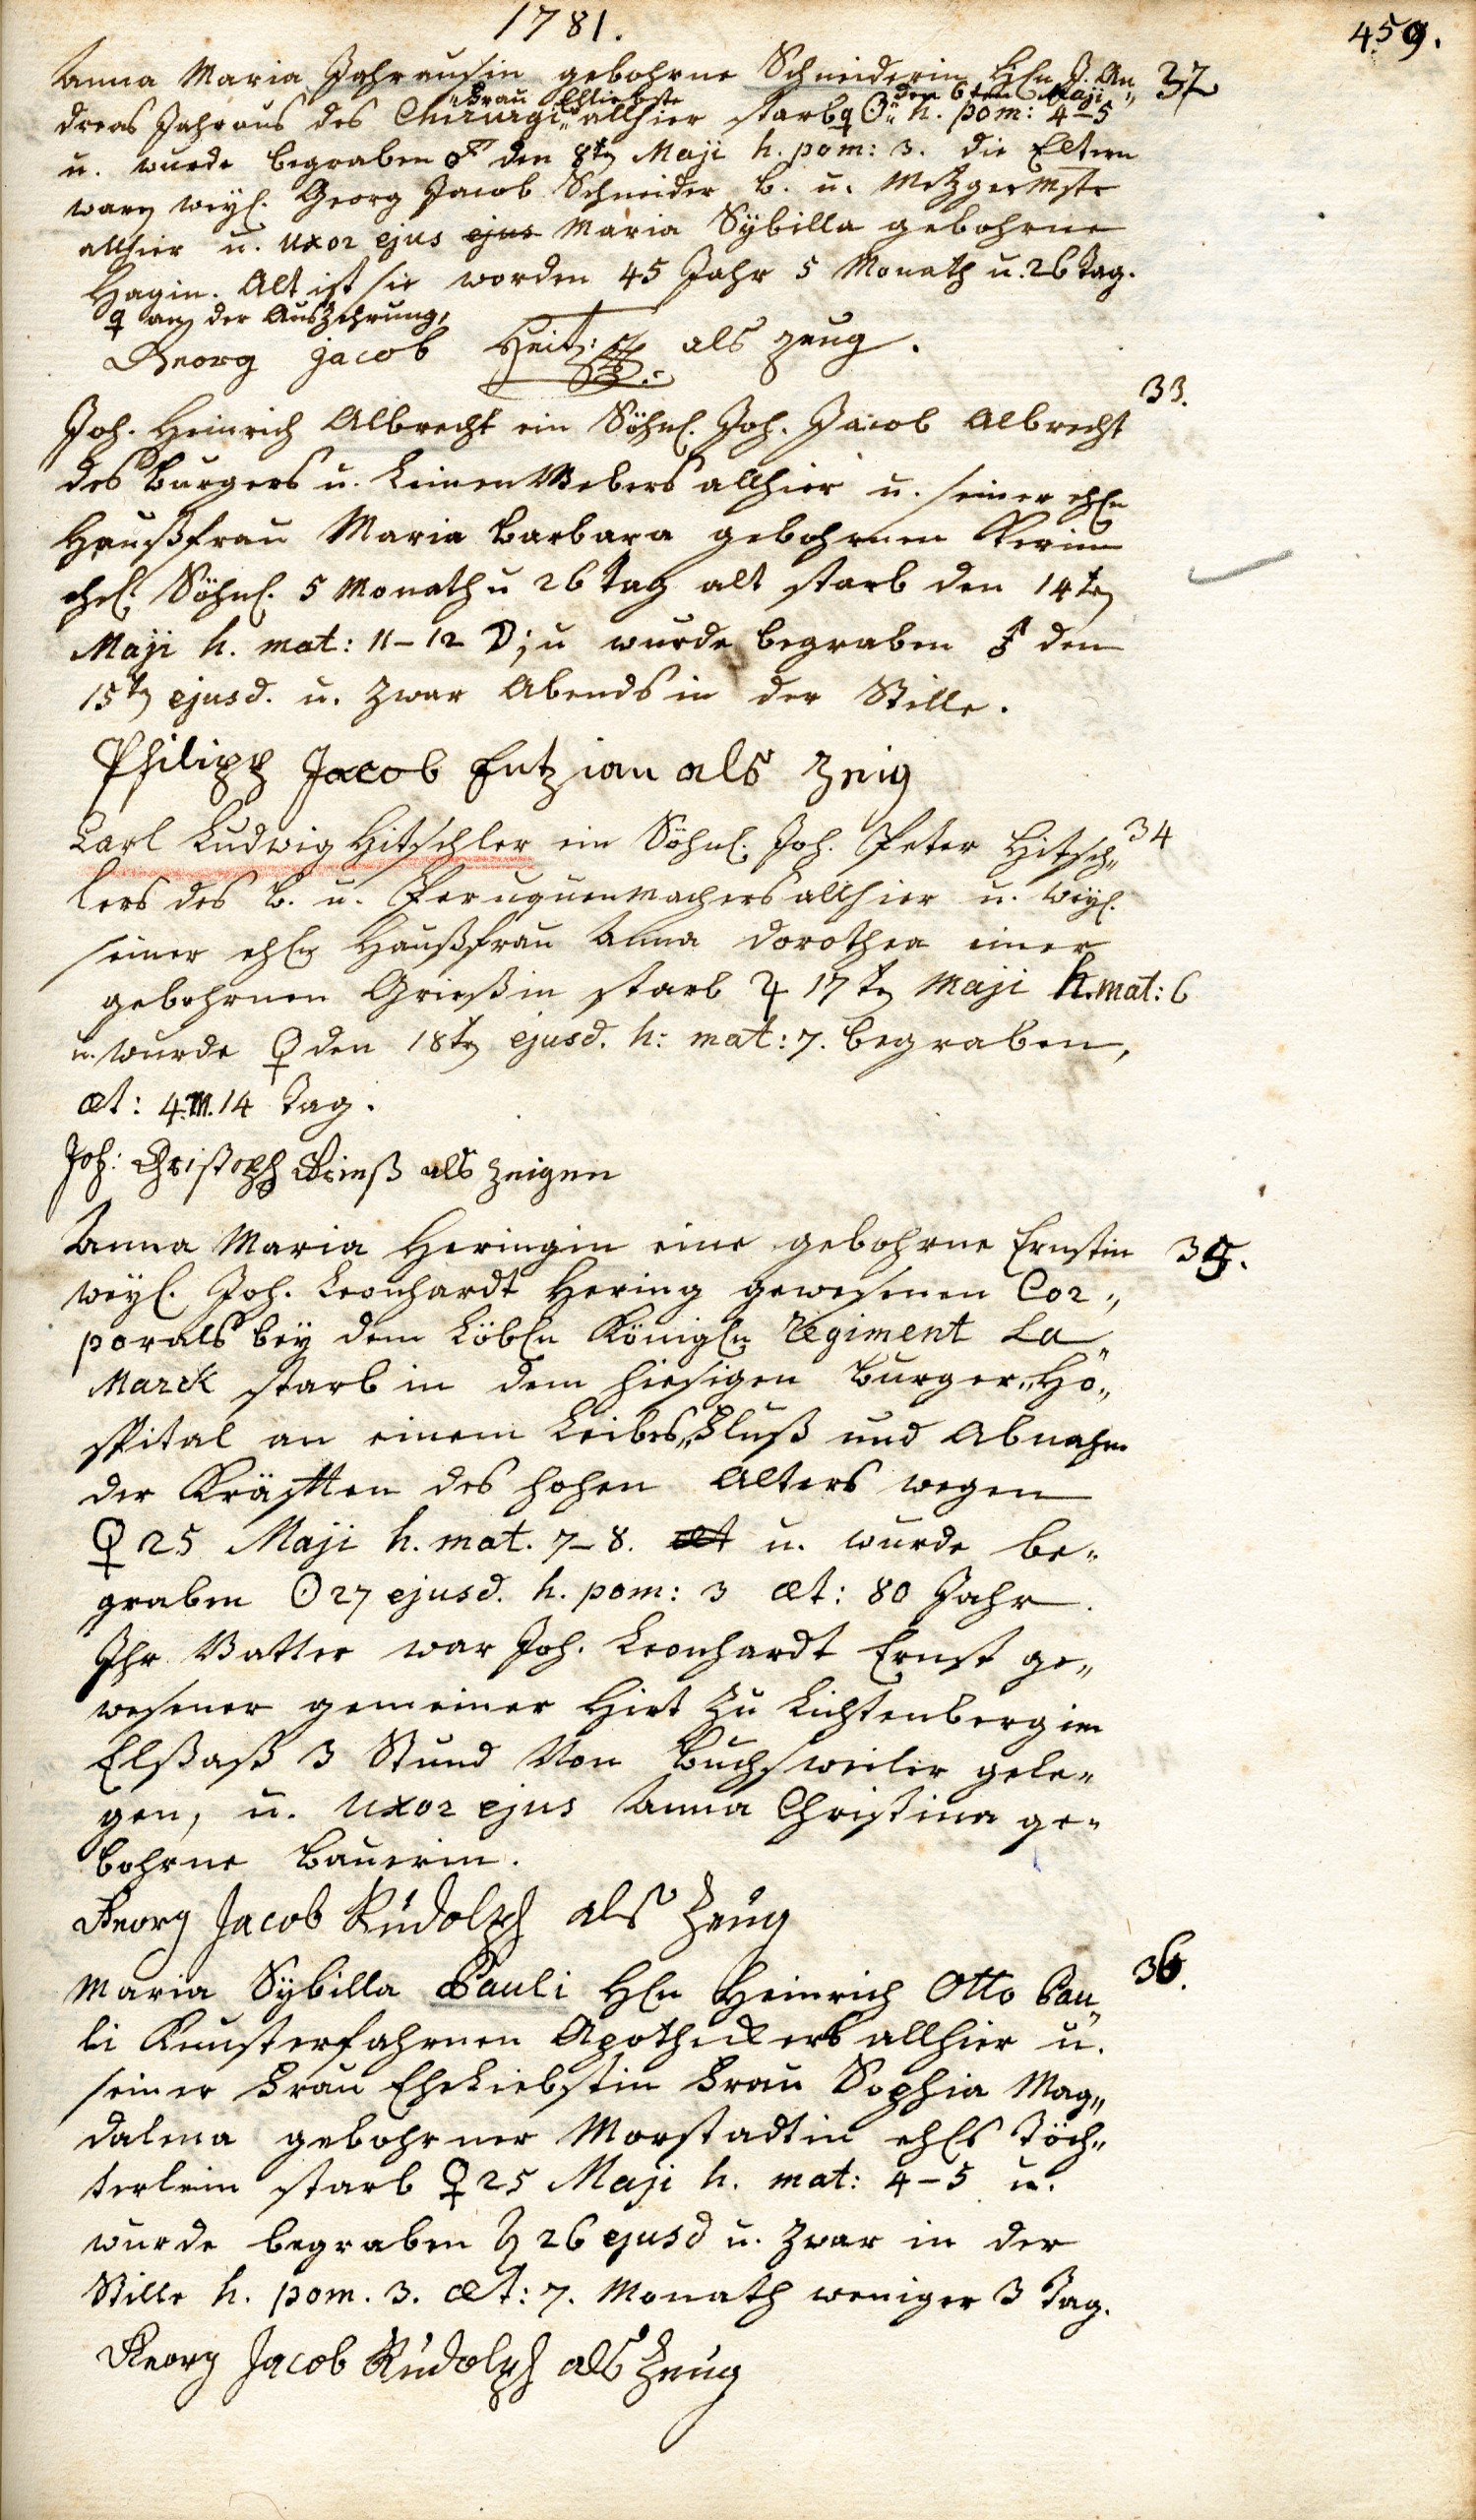 1781.
459.
Anna Maria Jahrausin gebohrne Schneiderin Hln J. An„
32
dreas Jahraus des Chirurgi allhier Frau Ehliebste starb ☉ den 6ten Maji h. pom: 4-5
u. wurde begraben ♂ den 8ten Maji h. pom: 3. die Eltern
waren weyl. Georg Jacob Schneider b. u. Metzgermstr
allhier u. uxor ejus ejus Maria Sybilla gebohrne
Hagin. Alt ist sie worden 45 Jahr 5 Monath u. 26 Tag.
an der Auszehrung,
Georg jacob Heitz als zeug.
33.
Joh. Heinrich Albrecht ein Söhnl. Joh. Jacob Albrecht
des Burgers u. Leinenwebers allhier u. seiner ehln
Haußfrau Maria Barbara gebohrnen
ehel. Söhnl. 5 Monath u 26 Tag alt starb den 14ten
Maji h. mat: 11-12 ☽; u wurde begraben ♂ den
15ten ejusd. u. zwar Abends in der Stille.
Philipp Jacob Entzian als zeig
Carl Ludwig Hitschler ein Söhnl. Joh. Peter Hitsch„
34
lers des b. u. Peruquenmachers allhier u. weyl.
seiner ehln Haußfrau Anna Dorothea einer
gebohrnen Grießin starb ♃ 17ten Maji h. mat: 6
u. wurde ♀ den 18ten ejusd. h: mat: 7. begraben,
æt: 4.M. 14 Tag.
Joh: Christoph Grieß als zeigen
Anna Maria Heringin eine gebohrne Ernstin
35.
weyl. Joh. Leonhardt Hering gewesenen Cor„
porals bey dem Löbln Königln Regiment La„
Marck starb in dem hiesigen Burger„Ho„
spital an einem Leibes„Fluß und Abnahm
der Kräfften des hohen Alters wegen
♀ 25 Maji h. mat. 7-8. æt u. wurde be„
graben ☉ 27 ejusd. h. pom: 3 æt: 80 Jahr.
Ihr Vatter war Joh. Leonhardt Ernst ge„
wesener gemeiner Hirt zu Lichtenberg im
Elßaß 3 Stund von Buchsweiler gele„
gen, u. uxor ejus Anna Christina ge„
bohrne Bauerin.
Georg Jacob Rudolph als Zeug
36.
Maria Sybilla Pauli Hln Heinrich Otto Pau„
li Kunsterfahrnen Apotheckers allhier u.
seiner Frau Eheliebstin Frau Sophia Mag„
dalena gebohrner Morstadtin ehls Töch„
terlein starb ♀ 25 Maji h. mat: 4-5 u.
wurde begraben ♄ 26 ejusd u. zwar in der
Stille h. pom. 3. æt: 7. Monath weniger 3 Tag.
Georg Jacob Rudolph als Zeug